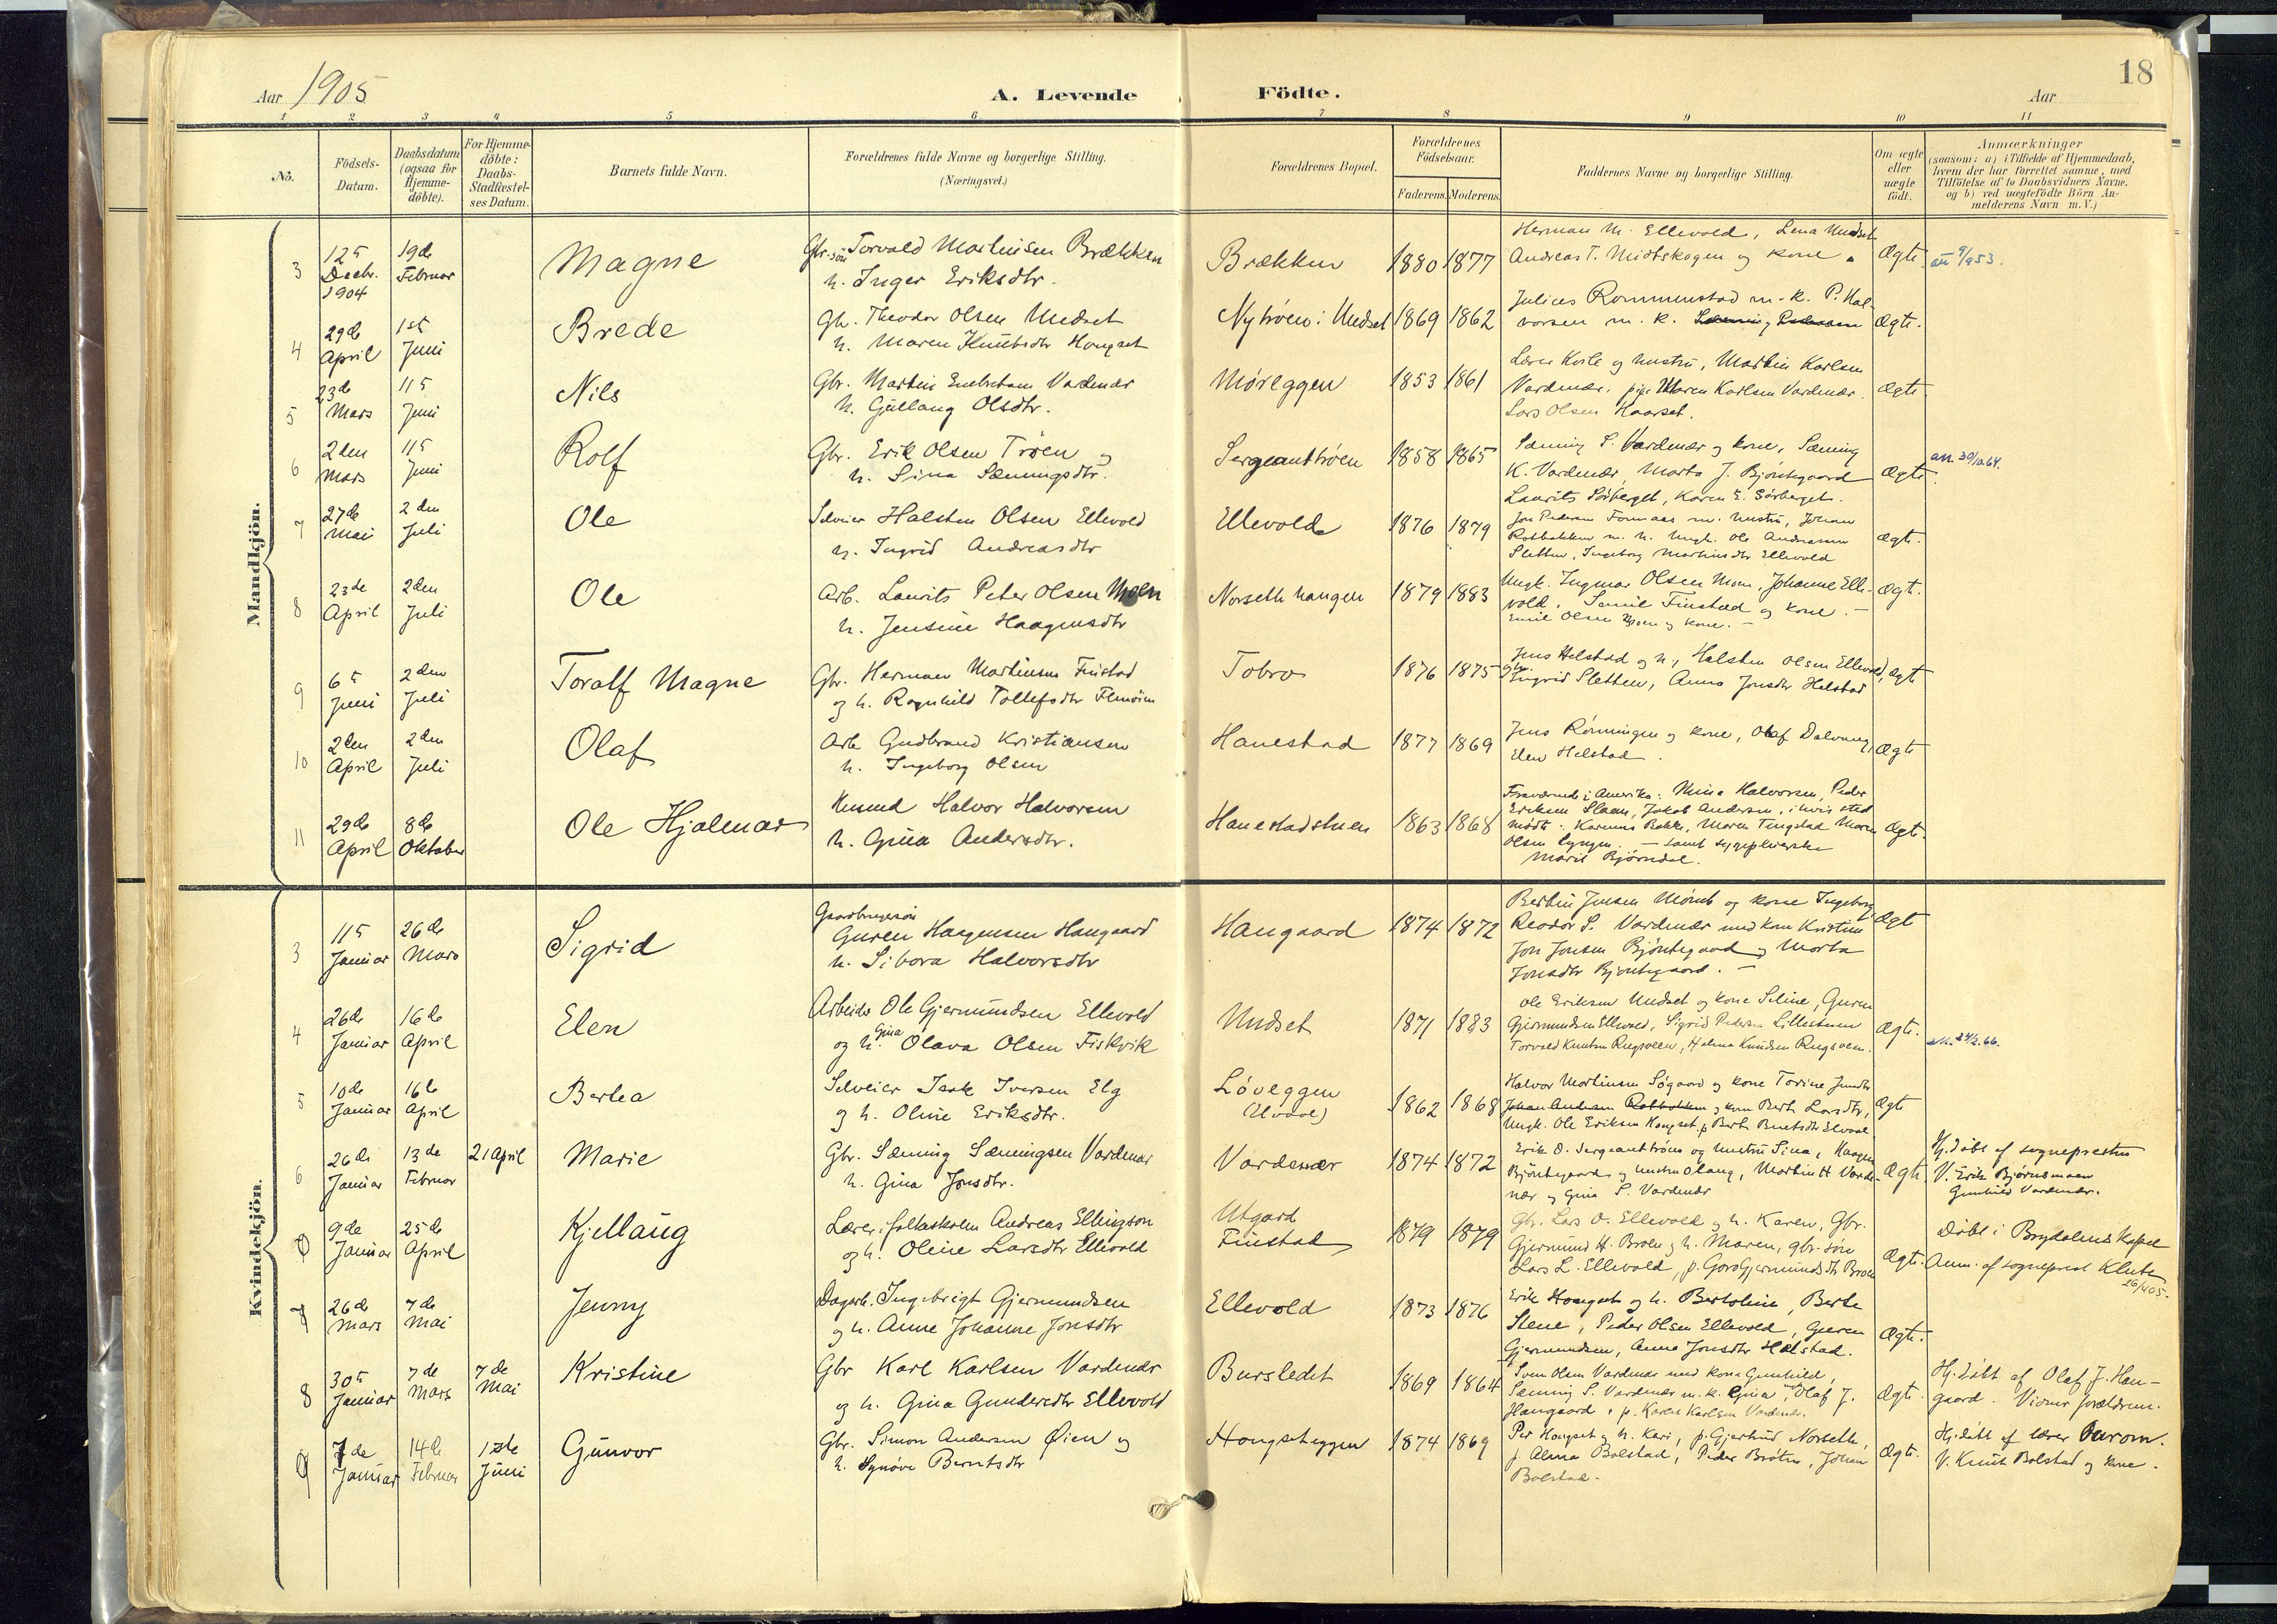 18
Aar 1905
A. Levende Födte.
Aar
1 2 3 4 5 6 7 8 9 10 11
No.
Födsels-
Datum.
Daabsdatum
(ogsaa for
Hjemme-
döbte).
For Hjemme-
döbte:
Daabs-
Stadfæstel-
ses Datum.
Barnets fulde Navn.
Forældrenes fulde Navne og borgerlige Stilling.
(Næringsvei.)
Forældrenes Bopæl.
Forældrenes
Födselsaar.
Faderens. Moderens.
Faddernes Navne og borgerlige Stilling.
Om ægte
eller
uægte
födt.
Anmærkninger
(saasom: a) i Tilfælde af Hjemmedaab,
hvem der har forrettet samme, med
Tilföielse af to Daabsvidners Navne,
og b) ved uægtefödte Börn An-
melderens Navn m. V.)
Mandkjön.
3
12t
Decbr.
1904
19de
Februar
Magne
Gbr.søn Torvald Martinsen Brækken
h. Inger Eriksdtr.
Brækken
1880 1877
Herman M. Ellevold, Lena Undset
Andreas T. Midtskogen og kone
Ægte
4
29de
April
1st
Juni
Brede
Gbr. Theodor Olsen Undset
h. Maren Knutsdtr Hongset
Nytrøen i Undset
1869 1862
Julius Rommenstad m. k. P. Hal-
vorsen m. k.
Ægte.
5
23de
Mars
11t
Juni
Nils
Gbr. Martin Enebretsen Vardenær
h. Gullaug Olsdtr.
Møreggen
1853 1861
Lærer Korle og hustru, Martin Karlsen
Vardenær. pige Maren Karlsen Vardenær.
Lars Olsen Haarset.
Ægte
6
2den
Mars
11t
Juni
Rolf
Gbr. Erik Olsen Trøen og
h. Sina Sæmingsdtr.
Sergeanttrøen
1858 1865
Sæming S. Vardenær og kone, Sæming
K. Vardenær, Marta J. Bjøntegaard
Laurits Sörberget, Karen E. Sörberget.
Ægte.
an. 30/10 64.
7
27de
Mai
2den
Juli
Ole
Selveier Halsten Olsen Ellevold
h. Ingrid Andreasdtr
Ellevold
1876 1879
Jon Pedersen Fonnaas m. hustru, Johan
Rotbakken m. h. Ungk. Ole Andreassen
Sletten, Ingeborg Martinsdtr Ellevold
Ægte.
8
23de
April
2den
Juli
Ole
Arb. Laurits Peter Olsen Moen
h. Jensine Haagensdtr
Norseth haugen
1879 1883
Ungk. Ingmar Olsen Moen, Johanne Elle-
vold. Finstad og kone.
Emil Olsen Moen og kone.
Ægt.
9
6t
Juni
2den
Juli
Toralf Magne
Gbr. Herman Martinsen Finstad
og h. Ragnhild Tollefsdtr
Tobro
1876 1875
Jens Helstad og h, Halsten Olsen Ellevold,
Ingrid Sletten, Anna Jonsdtr Helstad
Ægt
10
2den
April
2den
Juli
Olaf
Arb Gudbrand Kristiansen
h. Ingeborg Olsen
Hanestad
1877 1869
Jens Rønningen og kone, Olaf
Elen Helstad.
Ægt
11
29de
April
8de
Oktober
Ole Hjalmar
Halvor Halvorsen
h. Gina Andersdtr.
Hanestadstuen
1863 1868
Fraværende i Amerika: Mina Halvorsen, Peder
Eriksen, Jakob Andersen, i hvis sted
mødte. Bakke, Maren Tingstad Maren
Olsen — samt sygepleierske
Marit Bjørndal.
Ægte.
Kvindekjön.
3
11t
Januar
26de
Mars
Sigrid
Gaardbrugersøn
Guren Haagensen Haugaard
h. Sibora Halvorsdtr
Haugaard
1874 1872
Bertin Jensen og kone Ingeborg
Reodor S. Vardenær med kone Kristine
Jon Jonsen Bjøntegaard og Marta
Jonsdtr Bjøntegaard.
Ægt
4
26de
Januar
16de
April
Elen
Arbeider Ole Gjermundsen Ellevold
og h. Gina Olava Olsen Fiskvik
Undset
1871 1883
Ole Eriksen Undset og kone Seline, Guren
Gjermundsen Ellevold, Sigrid Pedersen Lillestuen
Torvald Knutsen Rugsveen, Halma Knudsen Rugsveen.
Ægte.
an. 24/2.66.
5
10de
Januar
16de
April
Bertea
Selveier Isak Iversen Elg
og h. Oline Eriksdtr.
Løveggen
1862 1868
Halvor Mortinsen Søgaard og kone Torine
Johan Andersen Rotbakken og kone Berte Larsdtr,
Ungk. Ole Eriksen Hongset,
Ægt
6
26de
Januar
13de
Februar
21 April
Marie
Gbr. Sæming Sæmingsen Vardenær
h. Gina Jonsdtr.
Vardenær
1874 1872
Erik O. Sergeanttrøen og hustru Sina, Haagen
Bjøntegaard og hustru Olaug, Martin H Varde-
nær og Gina S. Vardenær
Ægte
Hj. døbt af sognepresten
V. Erik Bjørnsmoen
Gunhild Vardenær.
9de
Januar
25de
April
Kjellaug
Lærer i folkeskolen Andreas Ellingson
og h. Oline Larsdtr Ellevold
Utgard
Finstad
1879 1879
Gbr. Lars O. Ellevold og h. Karen, Gbr.
Gjermund H. Broen og h. Maren, gbr. søn
Lars L. Ellevold, p. Goro Gjermundsdtr Broen
Ægte.
Døbt i Brydalens kapel
Anm. af sogneprest Klute
26/4 05.
7
26de
Mars
7de
Mai
Jenny
Dagarb. Ingebrigt Gjermundsen
og h. Anne Johanne Jonsdtr
Ellevold
1873 1876
Erik Hongset og h. Bertoline, Berte
Stene, Peder Olsen Ellevold, Guren
Gjermundsen, Anna Jonsdtr Helstad.
Ægte.
8
30t
Januar
7de
Mars
7de
Mai
Kristine
Gbr Karl Karlsen Vardenær
og h. Gina Gundersdtr Ellevold
Bursledet
1869 1864
Sven Olsen Vardenær med kone Gunhild,
Sæming S. Vardenær m. k. Gina, Olaf J.
Haugaard, p. Karen Karlsen Vardenær.
Ægte.
Hj. døbt af Olaf J. Hau-
gaard. Vidner forældrene.
9
7de
Januar
14de
Februar
1ste
Juni
Gunvor
Gbr. Simon Andersen Øien og
h. Synøve Berntsdtr
Hongseteggen
1874 1869
Per Hongset og h. Kari, p. Gjertrud Norseth,
p. Alma Bolstad, Peder Brøten, Johan
Bolstad.
Ægte.
Hj. døbt af lærer
V. Knut Bolstad og kone.